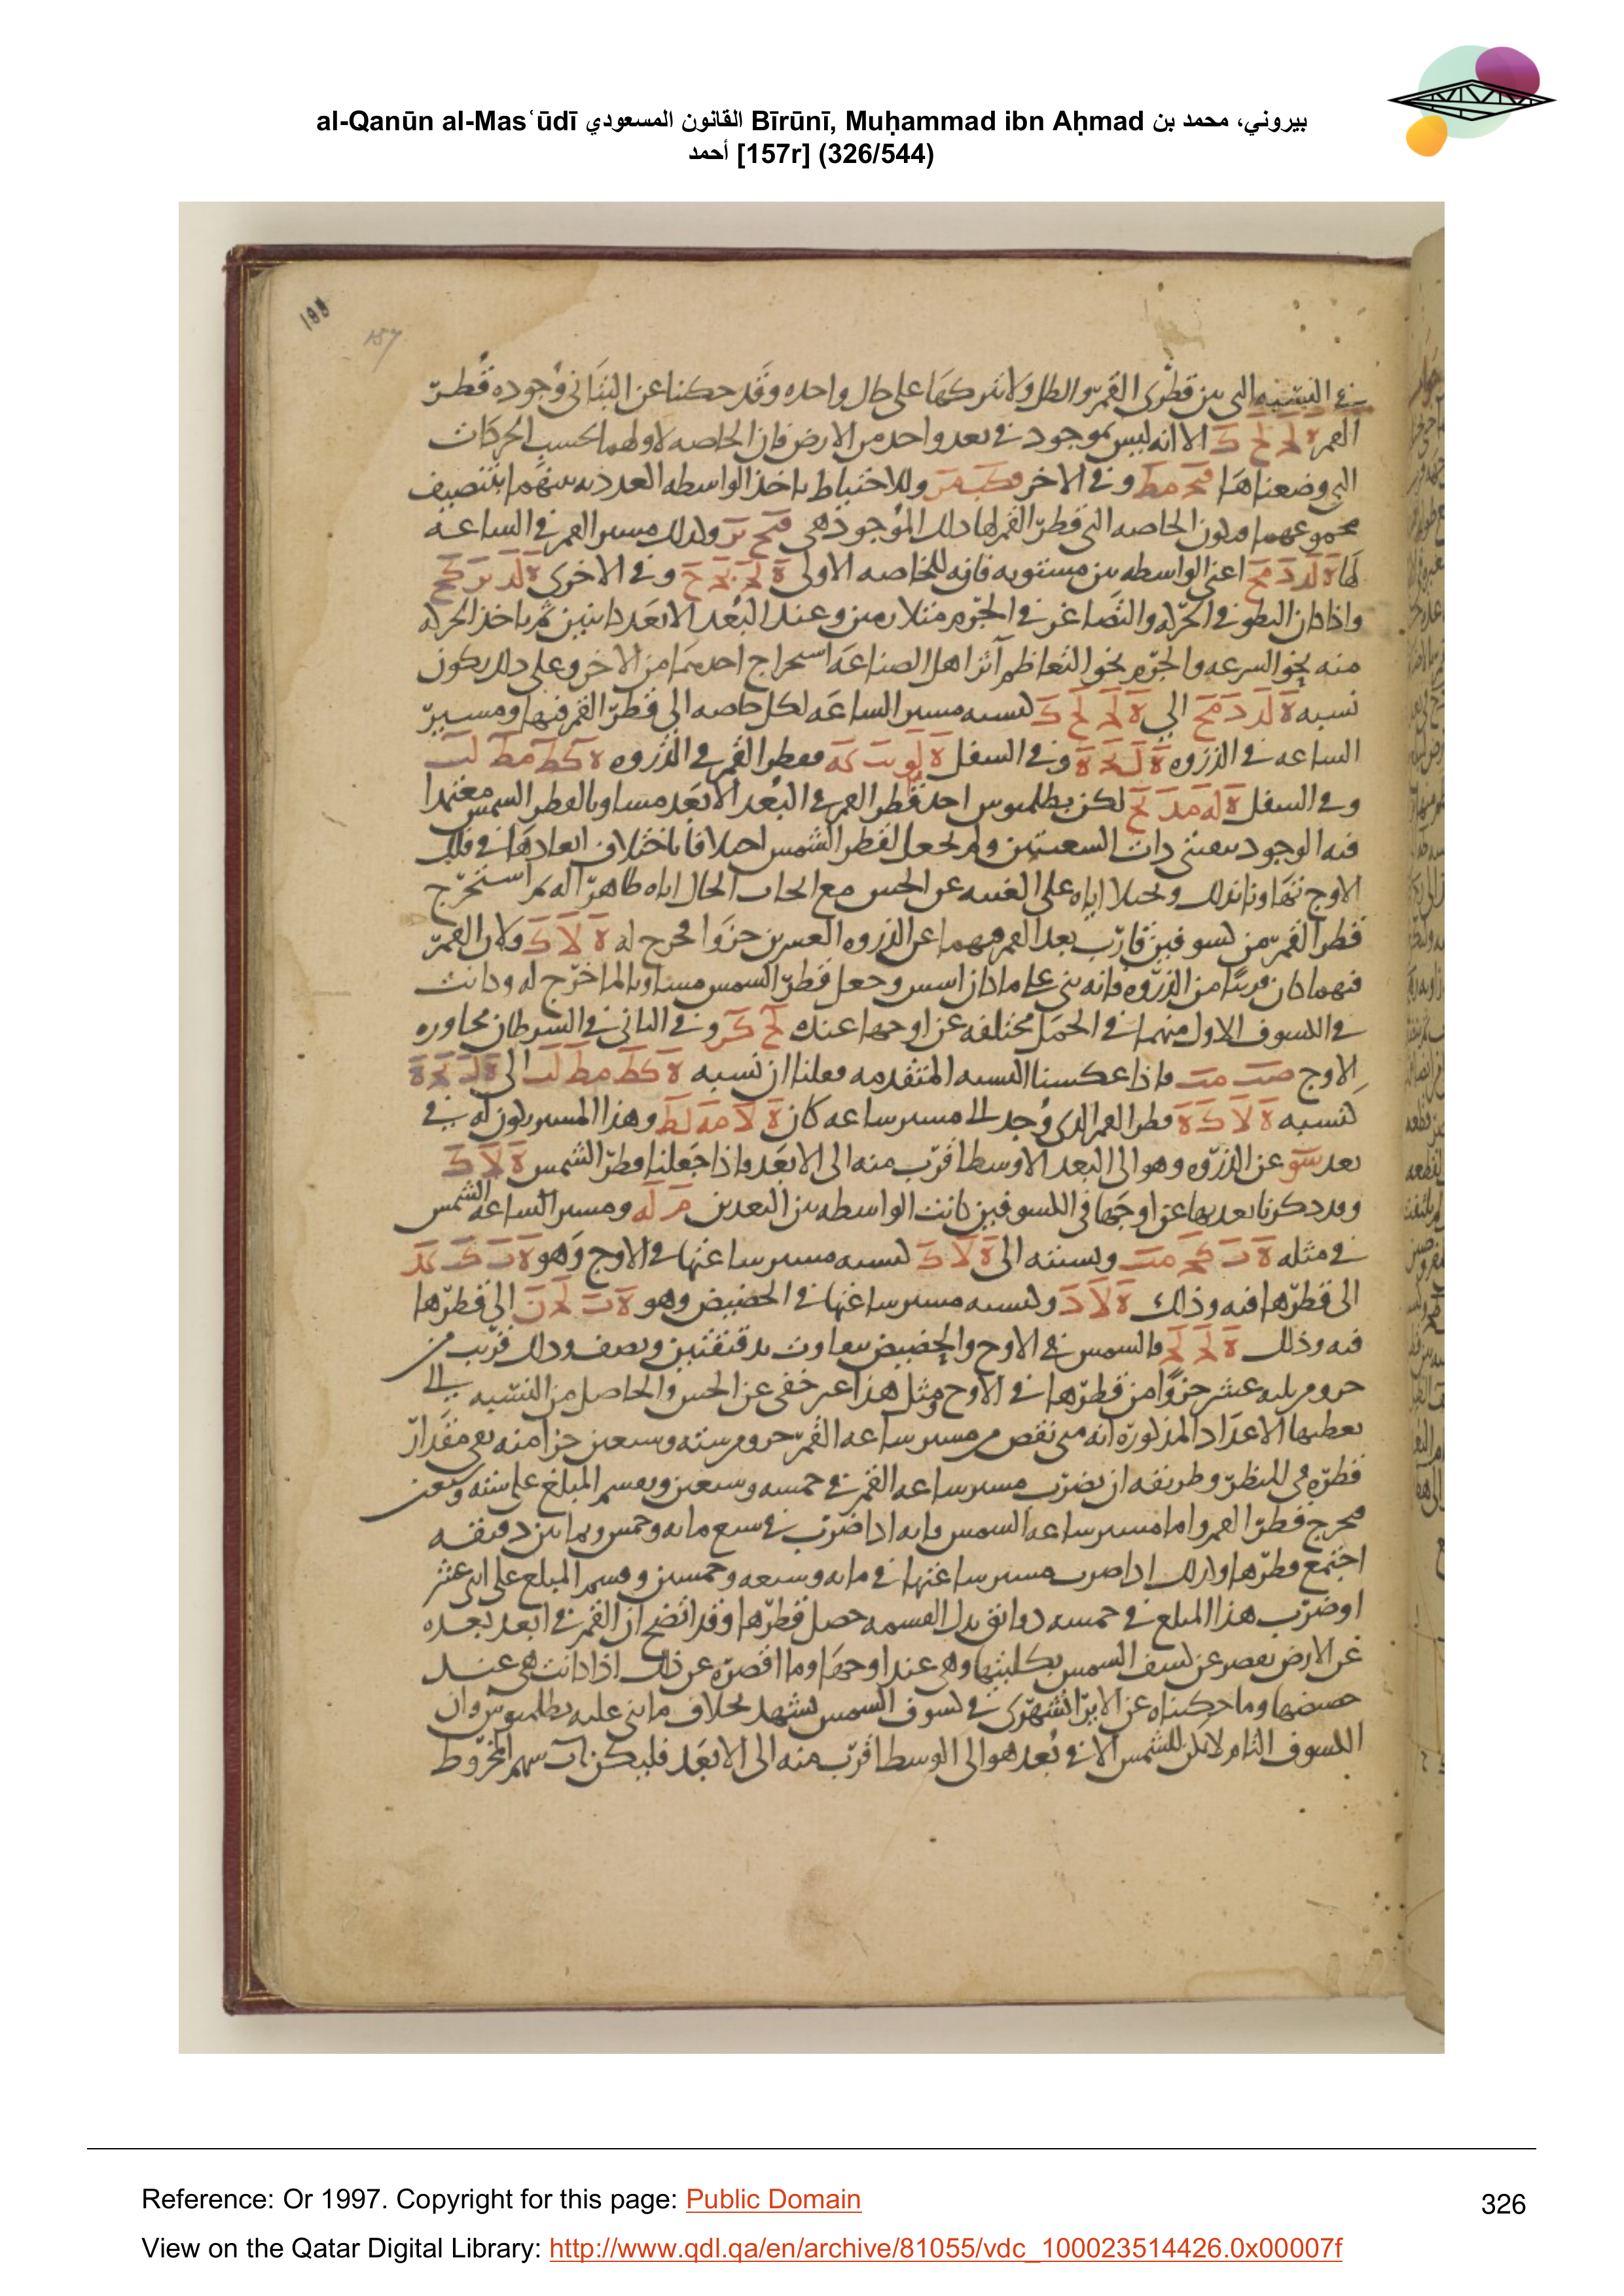 al-Qanūn al-Masʿūdī القانون المسعودي Bīrūnī, Muḥammad ibn Aḥmad بيروني، محمد بن
أحمد [157r] (326/544)
157
في النسبه التى بين قطرى القمر والظل ولا نتركها على حال واحده وقد حكينا عن البتانى وجوده قطر
القمر ه لح لح ك الا انه ليس بموجود في بعد واحد من الارض فان الخاصه لاولهما بحسب الحركات
التى وضعناها وفي الاخر وللاحتياط ناخذ الواسطه العدديه بينهما بتنصيف
مجموعهما فيكون الخاصه التى قطر القمر لها ذلك الموجود هى وكذلك مسير القمر في الساعة
لها ه لد د مح اعنى الواسطه بين مستويه فانه للخاصه الاولى وفي الاخرى
واذا كان البطو في الحركه والتصاغر في الجرم متلازمين وعند البعد الابعد كائنين ثم ياخذ الحركه
منه نحو السرعه والجرم نحو التعاظم آثر اهل الصناعة استخراج احدهما من الاخر وعلى ذلك يكون
نسبه ه لد د مح الى ه لح لح ك كنسبه مسير الساعه لكل خاصه الى قطر القمر فيها ومسير
الساعه في الذروه وفي السفل فقطر القمر في الذروه ه كط مط لب
وفي السفل لكن بطلميوس اخذ قطر القمر في البعد الابعد مساويا لقطر الشمس معتمدا
فيه الوجود بثقبتى ذات الشعبتين ولم يجعل لقطر الشمس اختلافا باختلاف ابعادها في فلك
الاوج تهاونا بذلك على الحس مع الحال اياه ظاهرا له ثم استخرج
قطر القمر من كسوفين قارب بعد القمر فيهما عن الذروه العشرين جزوا فخرج له ه لا ك ولان القمر
فيهما كان قريبا من الذروه فانه بنى على ما كان اسس وجعل قطر الشمس مساويا لما خرج له وكانت
في الكسوف الاول منهما في الحمل مختلفه عن اوجها عنده وفي الثانى في السرطان مجاوره
الاوج فاذا عكسنا النسبه المتقدمه فعلنا ان نسبه ه كط مط لب الى
كنسبه ه لا ك ه قطر القمر الذى وجد الى مسير ساعه كان ه لا مه لط وهذا المسير يكون له في
بعد عن الذروه وهو الى البعد الاوسط اقرب منه الى الابعد فاذا جعلنا قطر الشمس ه لا ك
وقد ذكرنا بعديها عن اوجها في الكسوفين كانت الواسطه بين البعدين م له ومسير الساعه للشمس
في مثله ونسبته الى ه لا ك كنسبه مسير ساعتها في الاوج وهو
الى قطرها فيه وذلك وكنسبه مسير ساعتها في الحضيض وهو الى قطرها
فيه وذلك فالشمس في الاوج والحضيض بتفاوت بدقيقتين ونصف وذلك قريب من
جزو من ثلثه عشر جزوا من قطرها في الاوج ومثل هذا غير خفى عن الحس والحاصل من النسبه التى
يعطيها الاعداد المذكوره انه متى نقص من مسير ساعه القمر جزو من سته وسبعين جزا منه بقى مقدار
قطره في المنظر وطريقه ان يضرب مسير ساعه القمر في خمسه وسبعين ويقسم المبلغ على سته وسبعين
فيخرج قطر القمر واما مسير ساعه الشمس فانه اذا ضرب في سبع مايه وخمس وثمانين دقيقه
اجتمع قطرها وكذلك اذا ضرب مسير ساعتها في مايه وسبعه وخمسين وقسم المبلغ على اثنى عشر
او ضرب هذا المبلغ في خمسه دوانق بدل القسمه حصل قطرها وقد اتضح ان القمر في ابعد بعده
عن الارض يقصر عن كسف الشمس بكليتها وهى عند اوجها وما اقصره عن ذلك اذا كانت هى عند
حضيضها وما حكيناه عن الايرانشهرى في كسوف الشمس يشهد بخلاف ما بنى عليه بطلميوس وان
الكسوف التام لا يكن للشمس الا في بعد هو الى الوسط اقرب منه الى الابعد فليكن اب سهم المخروط
Reference: Or 1997. Copyright for this page: Public Domain
326
View on the Qatar Digital Library: http://www.qdl.qa/en/archive/81055/vdc_100023514426.0x00007f